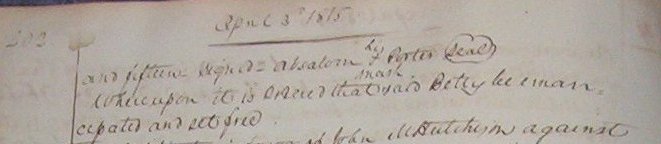 April 3d 1815
202
and fifteen Signed = Absalom his x mark Porter Seal
Whereupon it is Ordered that said Betty be eman=
cipated and set free
of John McHutchison against